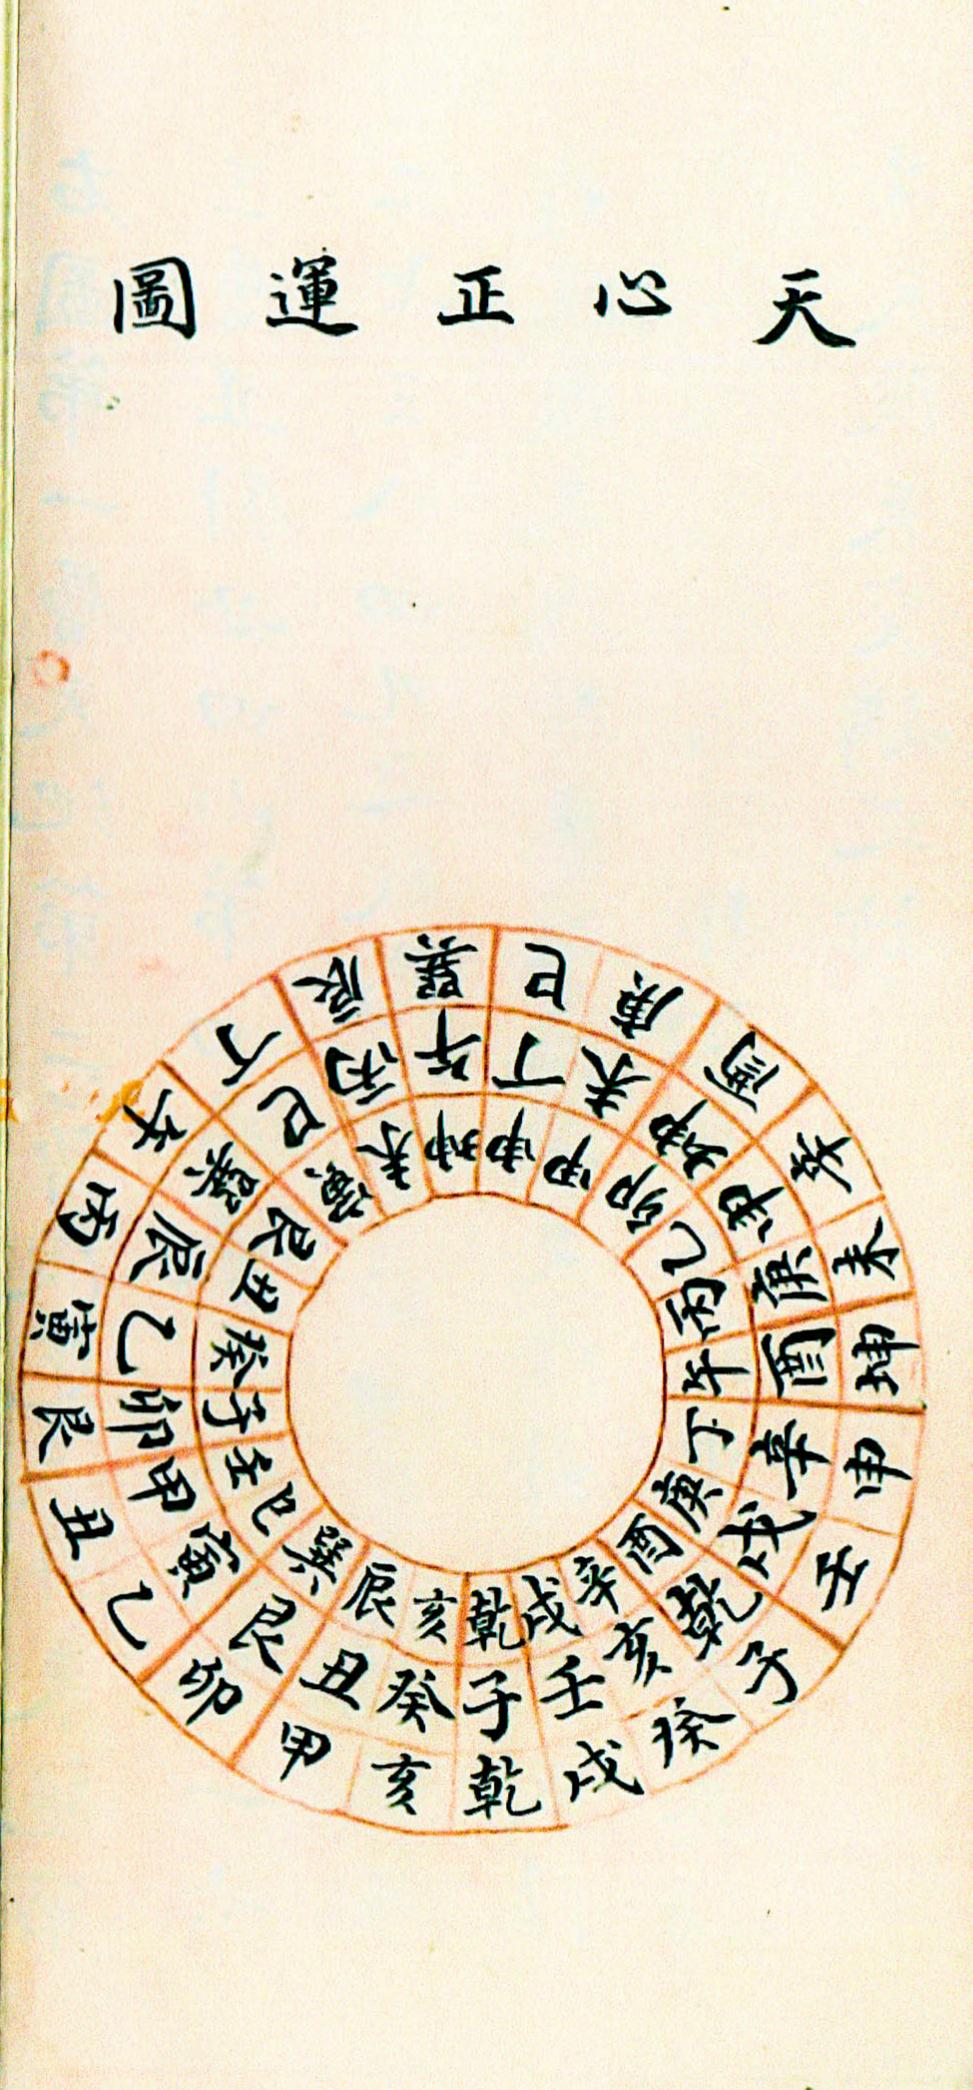 天心正運圖
巽巳庚酉辛未坤申壬子癸戌乾亥甲卯乙丑艮寅丙午丁辰
午丁未坤申庚酉辛戌乾亥壬子癸丑艮寅甲卯乙辰巽巳丙
坤申甲卯乙丙午丁庚酉辛戌乾亥辰巽巳壬子癸丑艮寅未